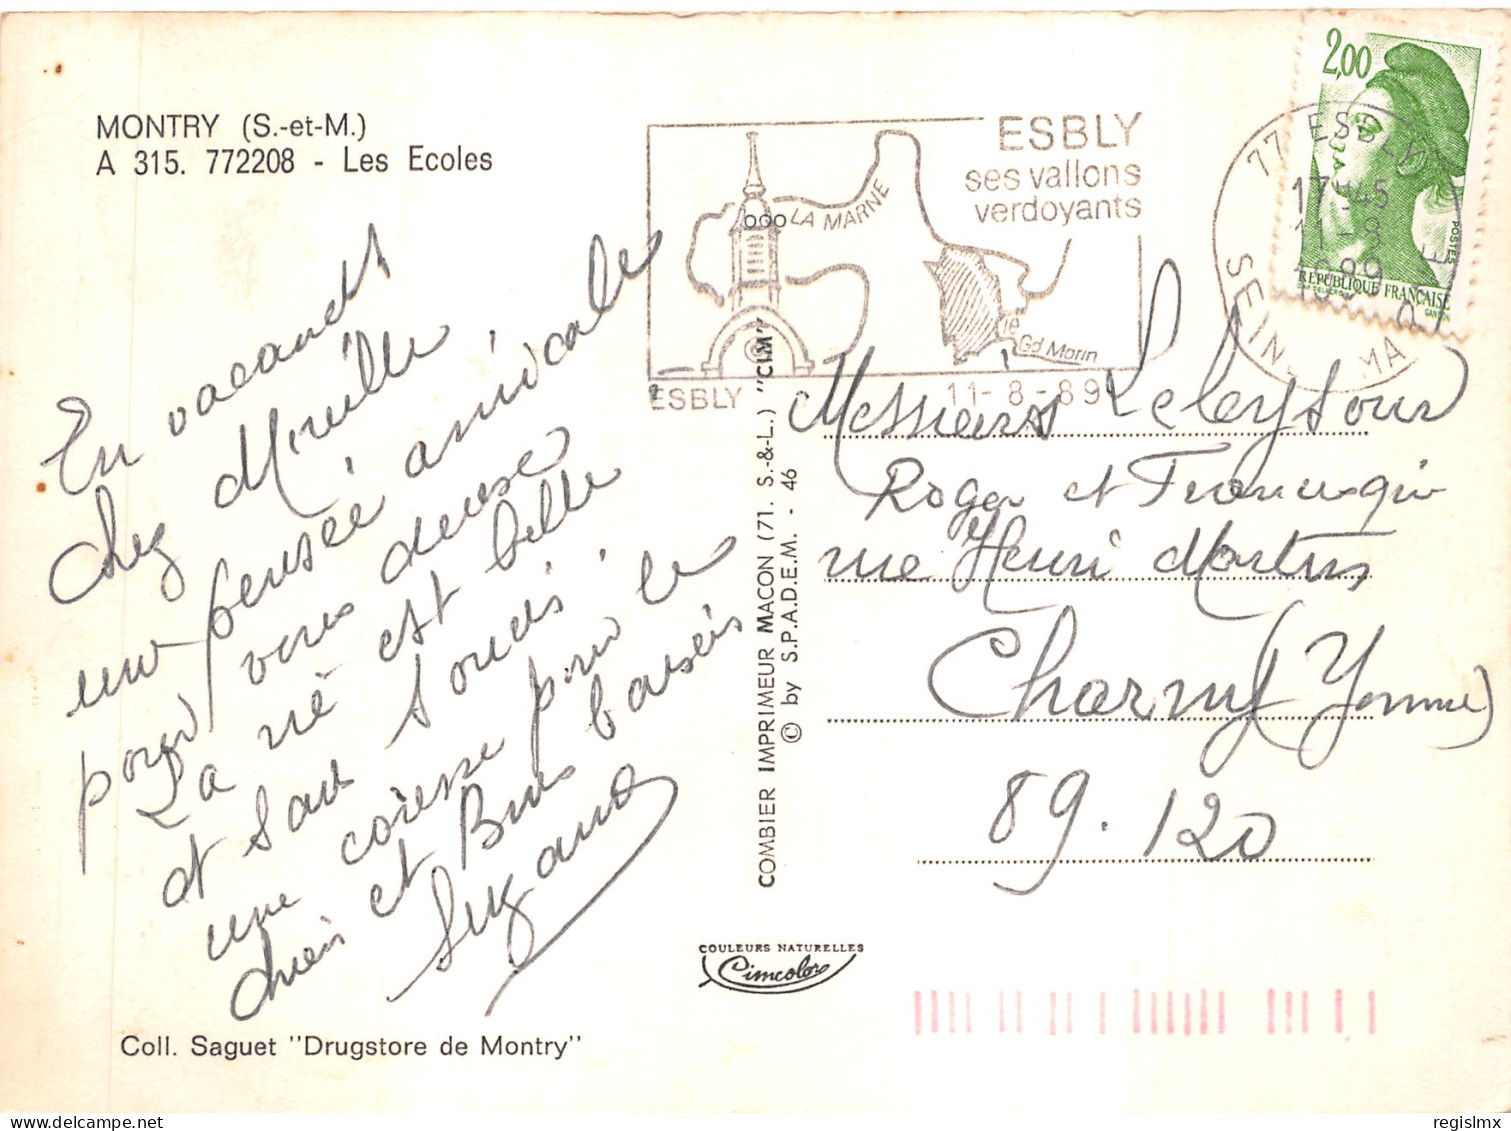 MONTRY (S.-et-M.)
A 315. 772208 - Les Ecoles
En vacances
chez Mireille
une pensée amicale
pour vous deux
La vie est belle
et sans soucis.
une caresse pour le
chien et Bons baisers
Suzanne
Coll. Saguet "Drugstore de Montry"
COMBIER IMPRIMEUR MACON (71. S.-&-L.) "CIM"
© by S.P.A.D.E.M. - 46
COULEURS NATURELLES
Cimcolor
ESBLY
ses vallons
verdoyants
LA MARNE
le
Gd Morin
ESBLY
11-8-89
77 ESBLY
17H45
11-8
1989
SEINE MA
2,00
POSTES
REPUBLIQUE FRANÇAISE
GANDON
Messieurs
Roger et
rue Henri Martin
Charny (Yonne)
89.120
regislmx